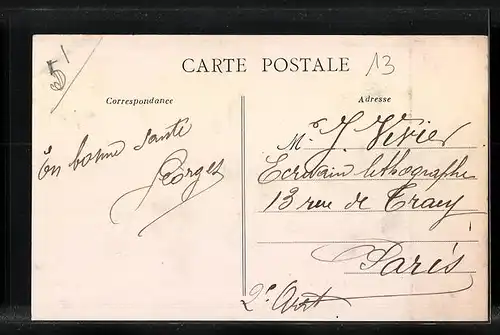 5/
CARTE POSTALE
13
Correspondance
Adresse
En bonne santé
Georges
Mr J. Vivier
Ecrivain lithographe
13 rue de Tracy
Paris
2e Arrt